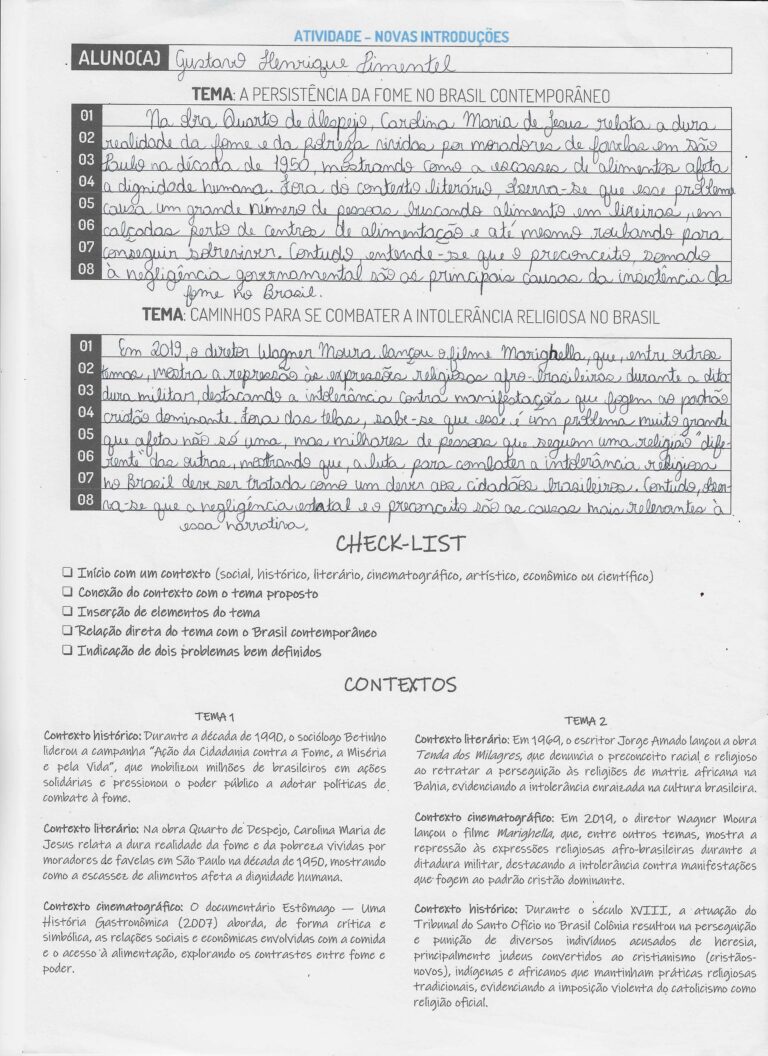 ATIVIDADE – NOVAS INTRODUÇÕES
ALUNO(A) Gustavo Henrique Pimentel
TEMA: A PERSISTÊNCIA DA FOME NO BRASIL CONTEMPORÂNEO
01 Na obra Quarto de despejo, Carolina Maria de Jesus relata a dura
02 realidade da fome e da pobreza vividas por moradores de favelas em são
03 Paulo na década de 1950, mostrando como a escasses de alimentos afeta
04 a dignidade humana. Fora do contexto literário, observa-se que esse problema
05 causa um grande número de pessoas buscando alimento em lixeiras, em
06 calçadas perto de centros de alimentação e até mesmo roubando para
07 conseguir sobreviver. Contudo, entende-se que o preconceito, somado
08 à negligência governamental são as principais causas da insistência da
fome no Brasil.
TEMA: CAMINHOS PARA SE COMBATER A INTOLERÂNCIA RELIGIOSA NO BRASIL
01 Em 2019, o diretor Wagner Moura lançou o filme Marighella, que, entre outros
02 temas, mostra a repressão às expressões religiosas afro-brasileiras durante a dita
03 dura militar, destacando a intolerância contra manifestações que fogem ao padrão
04 cristão dominante. Fora das telas, sabe-se que esse é um problema muito grande
05 que afeta não só uma, mas milhares de pessoas que seguem uma religião "dife-
06 rente" das outras, mostrando que, a luta para combater a intolerância religiosa
07 no Brasil deve ser tratada como um dever aos cidadãos brasileiros. Contudo, obser-
08 va-se que a negligência estatal e o preconceito são as causas mais relevantes à
essa narrativa.
CHECK-LIST
❑ Início com um contexto (social, histórico, literário, cinematográfico, artístico, econômico ou científico)
❑ Conexão do contexto com o tema proposto
❑ Inserção de elementos do tema
❑ Relação direta do tema com o Brasil contemporâneo
❑ Indicação de dois problemas bem definidos
CONTEXTOS
TEMA 1
Contexto histórico: Durante a década de 1990, o sociólogo Betinho
liderou a campanha "Ação da Cidadania contra a Fome, a Miséria
e pela Vida", que mobilizou milhões de brasileiros em ações
solidárias e pressionou o poder público a adotar políticas de
combate à fome.
Contexto literário: Na obra Quarto de Despejo, Carolina Maria de
Jesus relata a dura realidade da fome e da pobreza vividas por
moradores de favelas em São Paulo na década de 1950, mostrando
como a escassez de alimentos afeta a dignidade humana.
Contexto cinematográfico: O documentário Estômago — Uma
História Gastronômica (2007) aborda, de forma crítica e
simbólica, as relações sociais e econômicas envolvidas com a comida
e o acesso à alimentação, explorando os contrastes entre fome e
poder.
TEMA 2
Contexto literário: Em 1969, o escritor Jorge Amado lançou a obra
Tenda dos Milagres, que denuncia o preconceito racial e religioso
ao retratar a perseguição às religiões de matriz africana na
Bahia, evidenciando a intolerância enraizada na cultura brasileira.
Contexto cinematográfico: Em 2019, o diretor Wagner Moura
lançou o filme Marighella, que, entre outros temas, mostra a
repressão às expressões religiosas afro-brasileiras durante a
ditadura militar, destacando a intolerância contra manifestações
que fogem ao padrão cristão dominante.
Contexto histórico: Durante o século XVIII, a atuação do
Tribunal do Santo Ofício no Brasil Colônia resultou na perseguição
e punição de diversos indivíduos acusados de heresia,
principalmente judeus convertidos ao cristianismo (cristãos-
novos), indígenas e africanos que mantinham práticas religiosas
tradicionais, evidenciando a imposição violenta do catolicismo como
religião oficial.